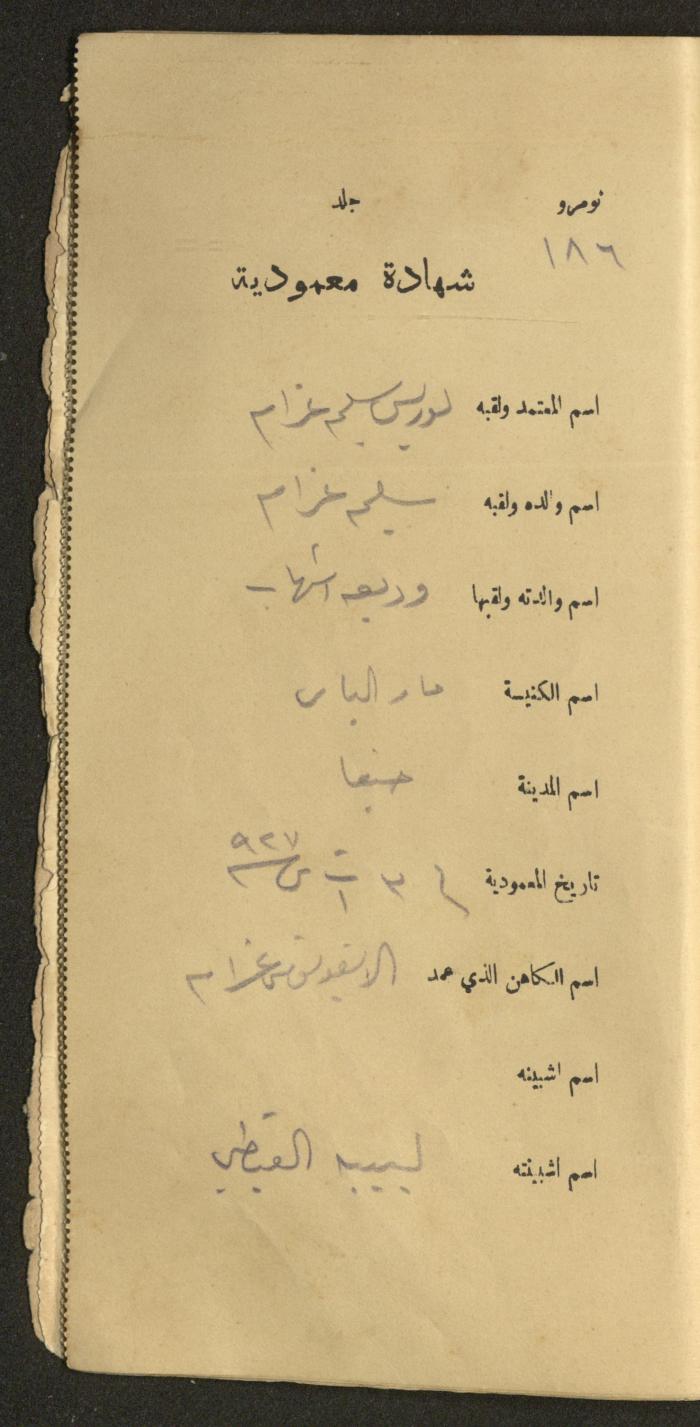 نومرو جلد
١٨٦
شهادة معمودية
اسم المعتمد ولقبه لوريس سليم عزام
اسم والده ولقبه سليم عزام
اسم والدته ولقبها وديعه شهاب
اسم الكنيسة مار الياس
اسم المدينة حيفا
تاريخ المعمودية ٣ ت١ سنة ٩٢٧
اسم الكاهن الذي عمد عزام
اسم اشبينه
اسم اشبينته لبيبه القبطي